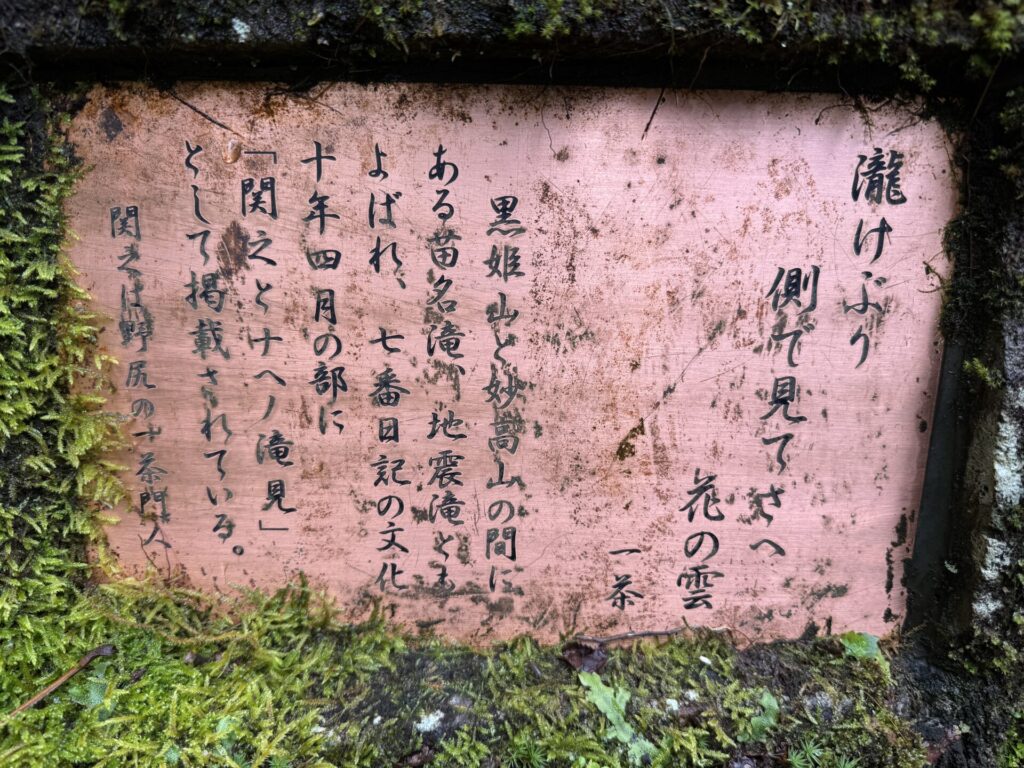 瀧けぶり
側で見てさへ
花の雲
一茶
黒姫山と妙高山の間に
ある苗名滝、地震滝とも
よばれ、七番日記の文化
十年四月の部に
「関之とナヘノ滝見」
として掲載されている。
関之は野尻の一茶門人